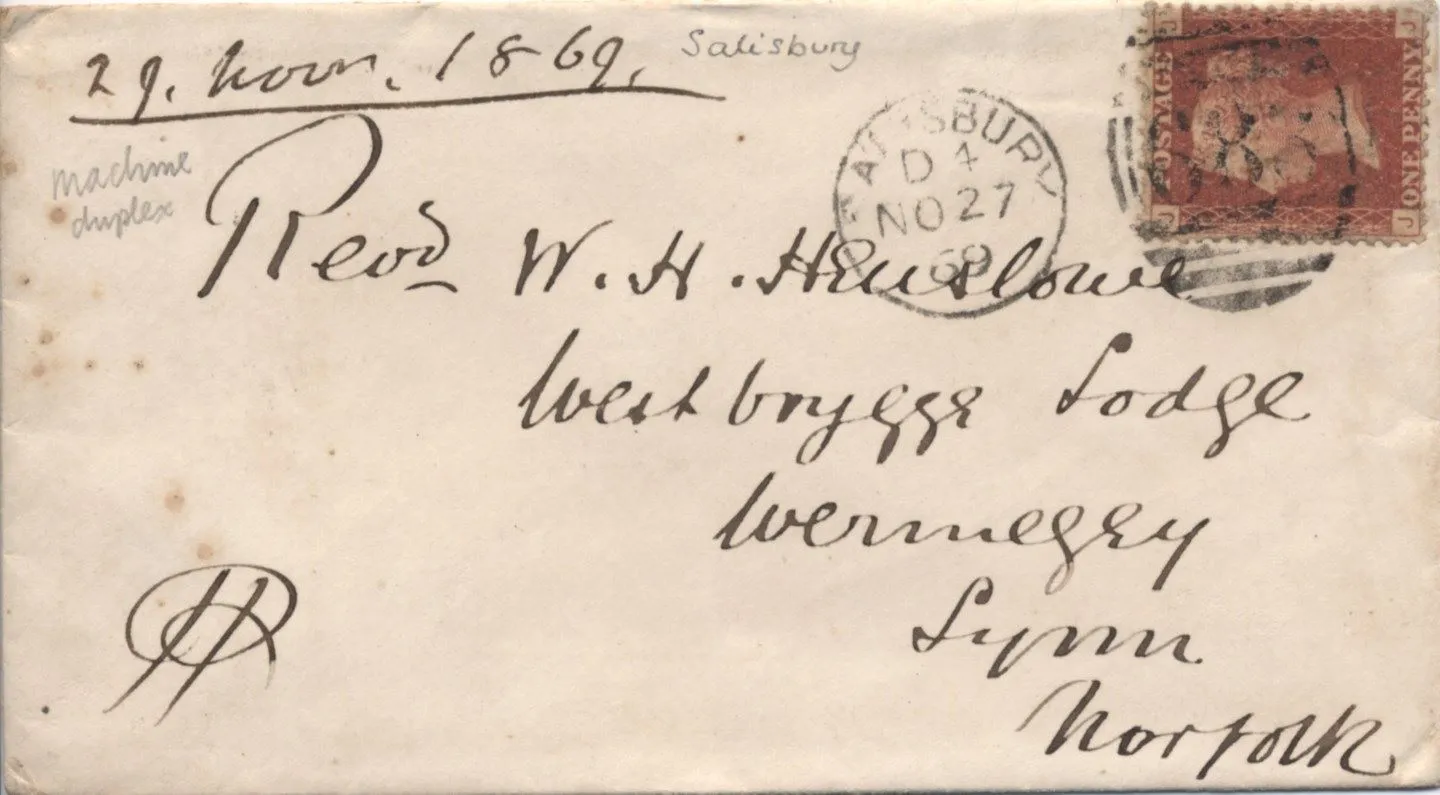 29. Novr. 1869.
Salisbury
machine
duplex
SALISBURY
D 4
NO 27
69
J J
POSTAGE
ONE PENNY
J J
Revd W. H. Henslowe
Westbrygge Lodge
Wermegey
Lynn
Norfolk